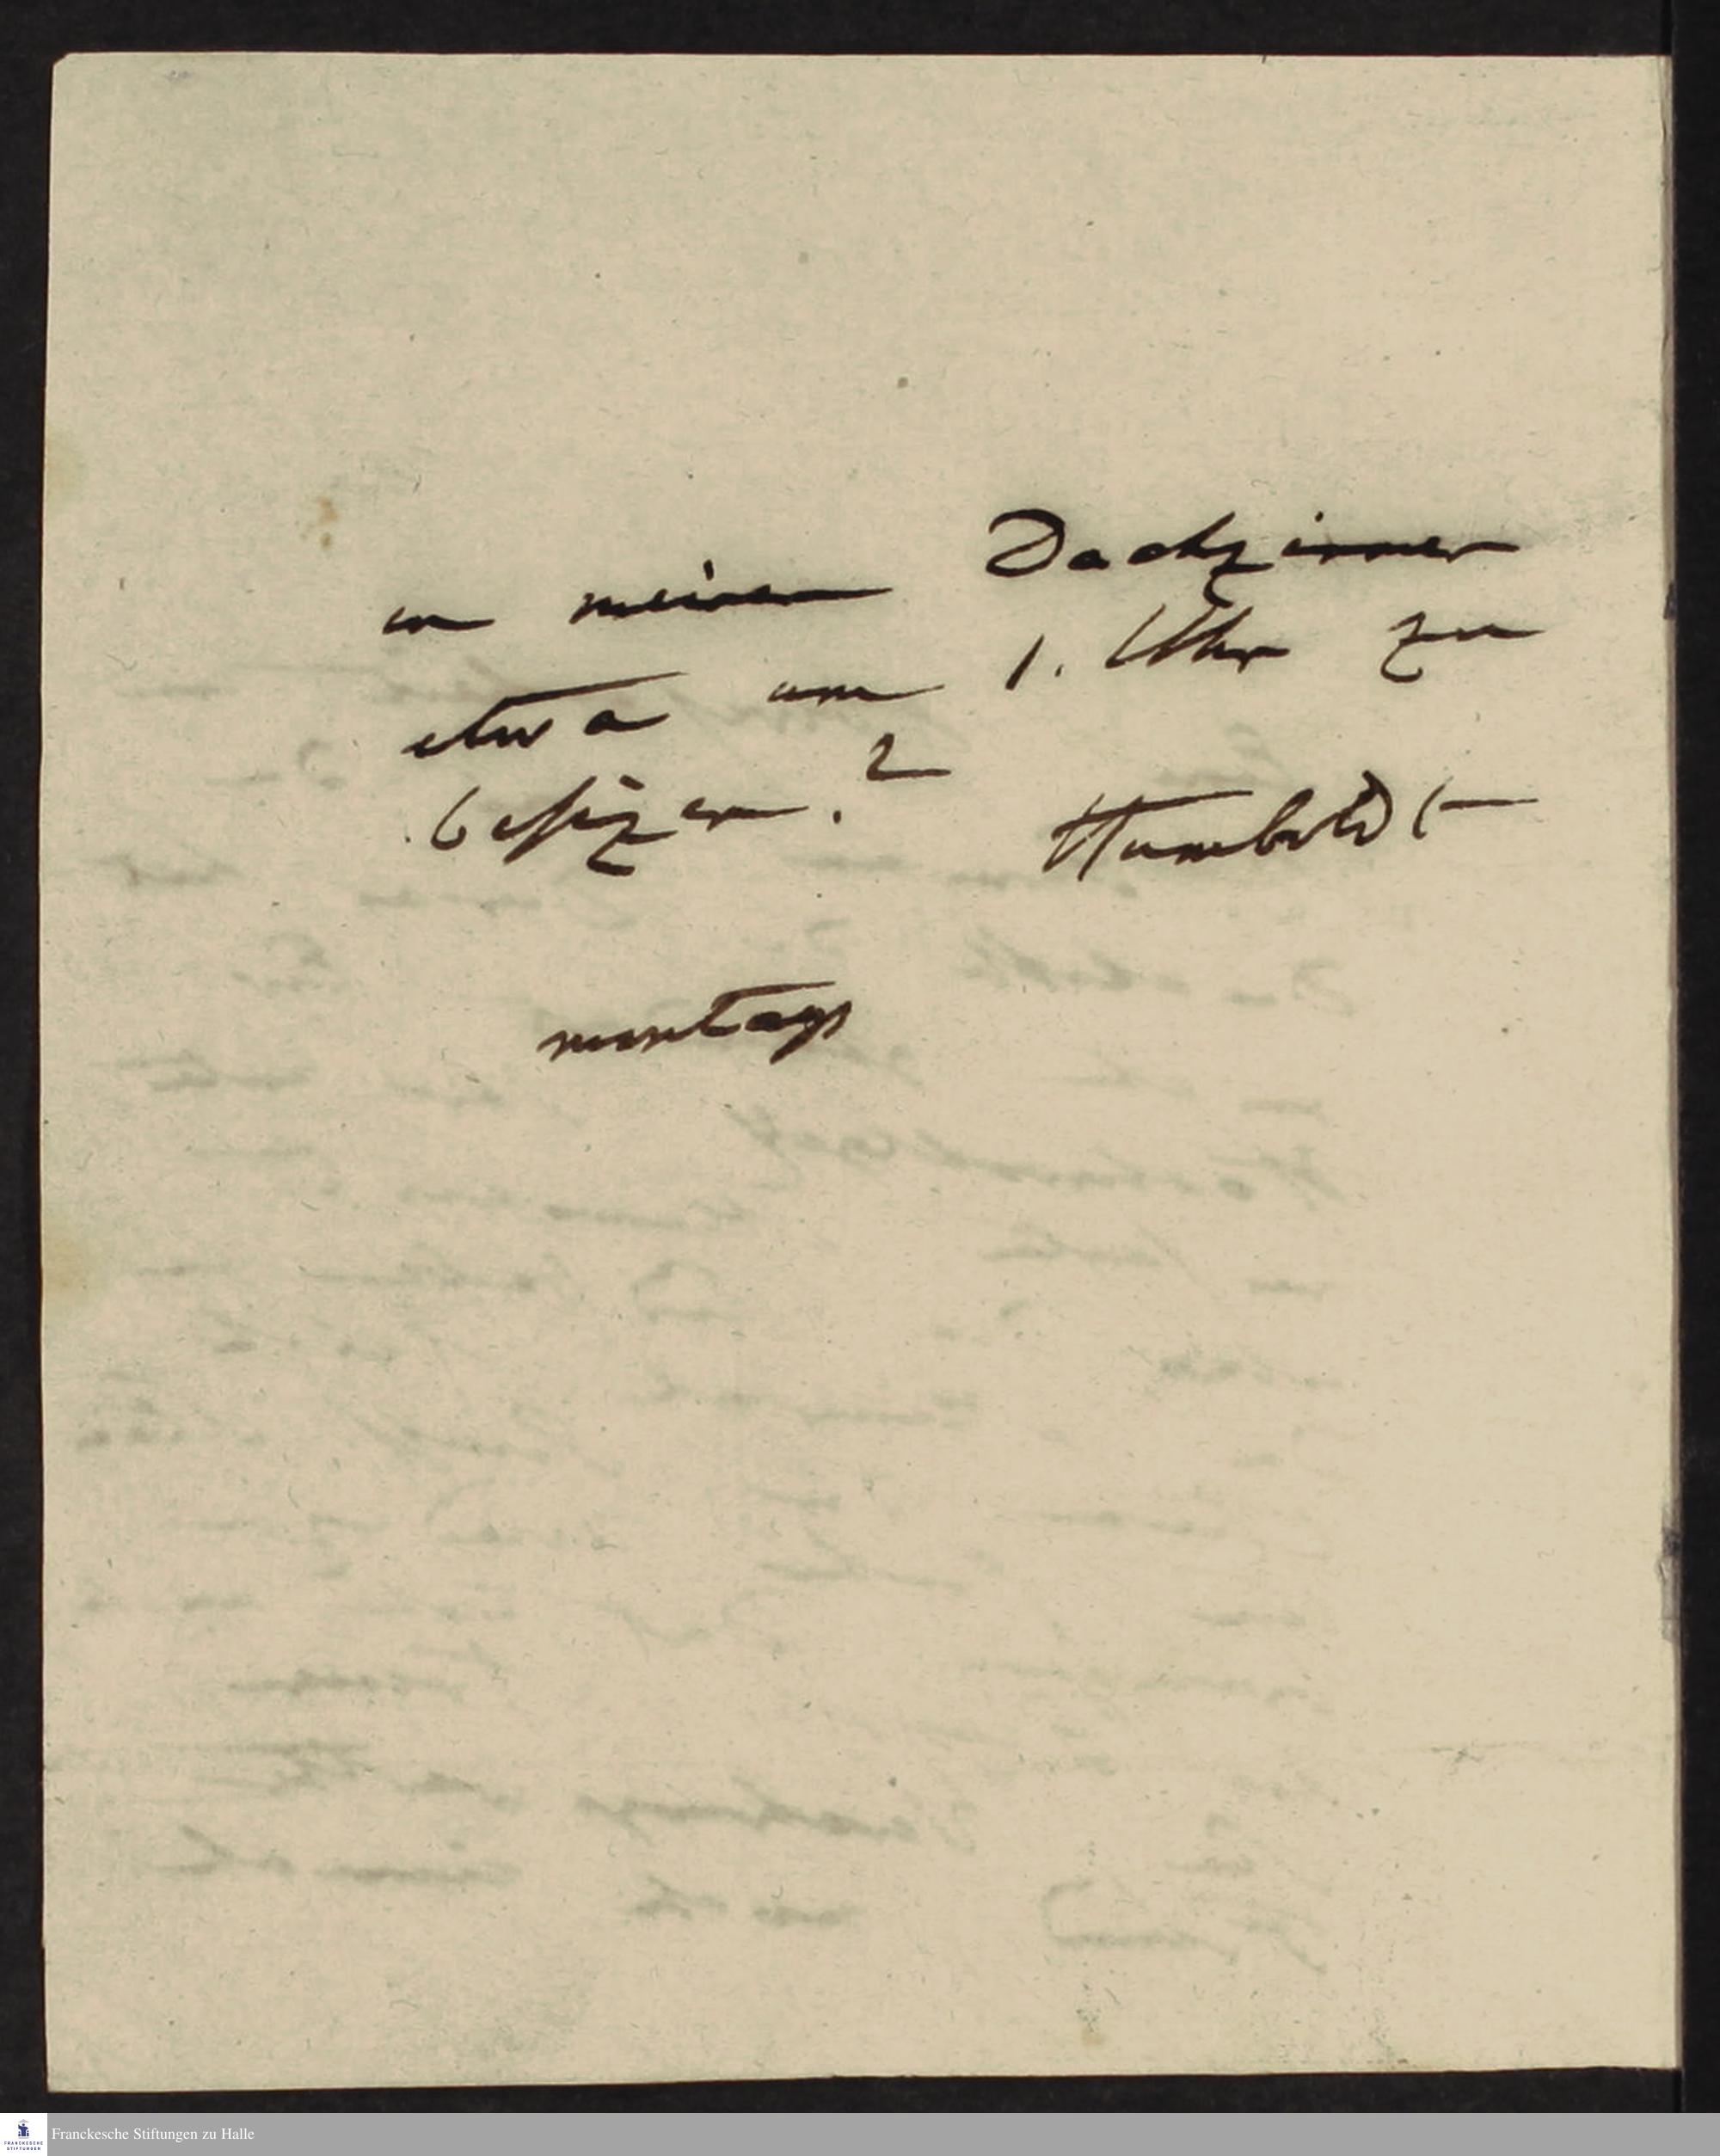 in meinem Dachzimmer
etwa um 1. Uhr zu
besizen?
Humboldt
montags
Franckesche Stiftungen zu Halle
FRANCKESCHE
STIFTUNGEN